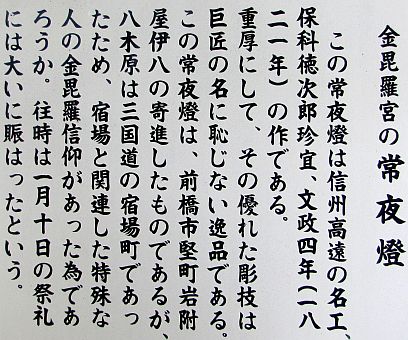 金毘羅宮の常夜燈
この常夜燈は信州高遠の名工、
保科徳次郎珍宜、文政四年(一八
二一年)の作である。
重厚にして、その優れた彫技は
巨匠の名に恥じない逸品である。
この常夜燈は、前橋市竪町岩附
屋伊八の寄進したものであるが、
八木原は三国道の宿場町であっ
たため、宿場と関連した特殊な
人の金毘羅信仰があった為であ
ろうか。往時は一月十日の祭礼
には大いに賑はったという。